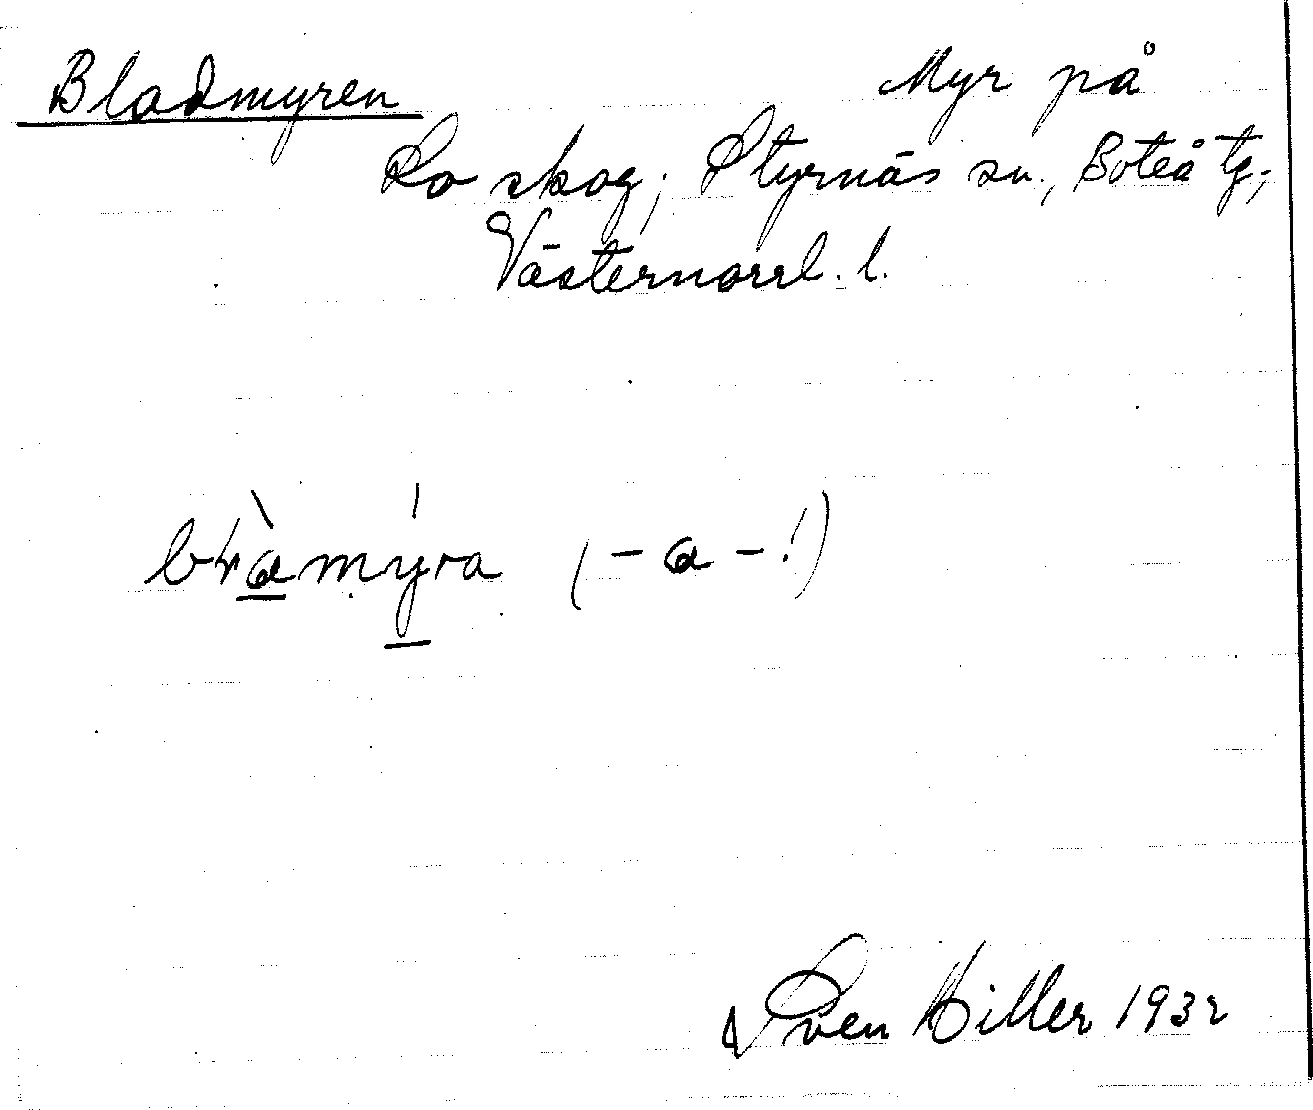 Bladmyren Myr på
Lo skog, Styrnäs sn., Boteå tg,
Västernorrl. l.
(-a-!)
Sven Hiller 1932